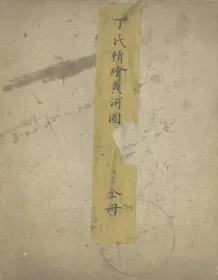 丁氏精繪黃河圖
全冊